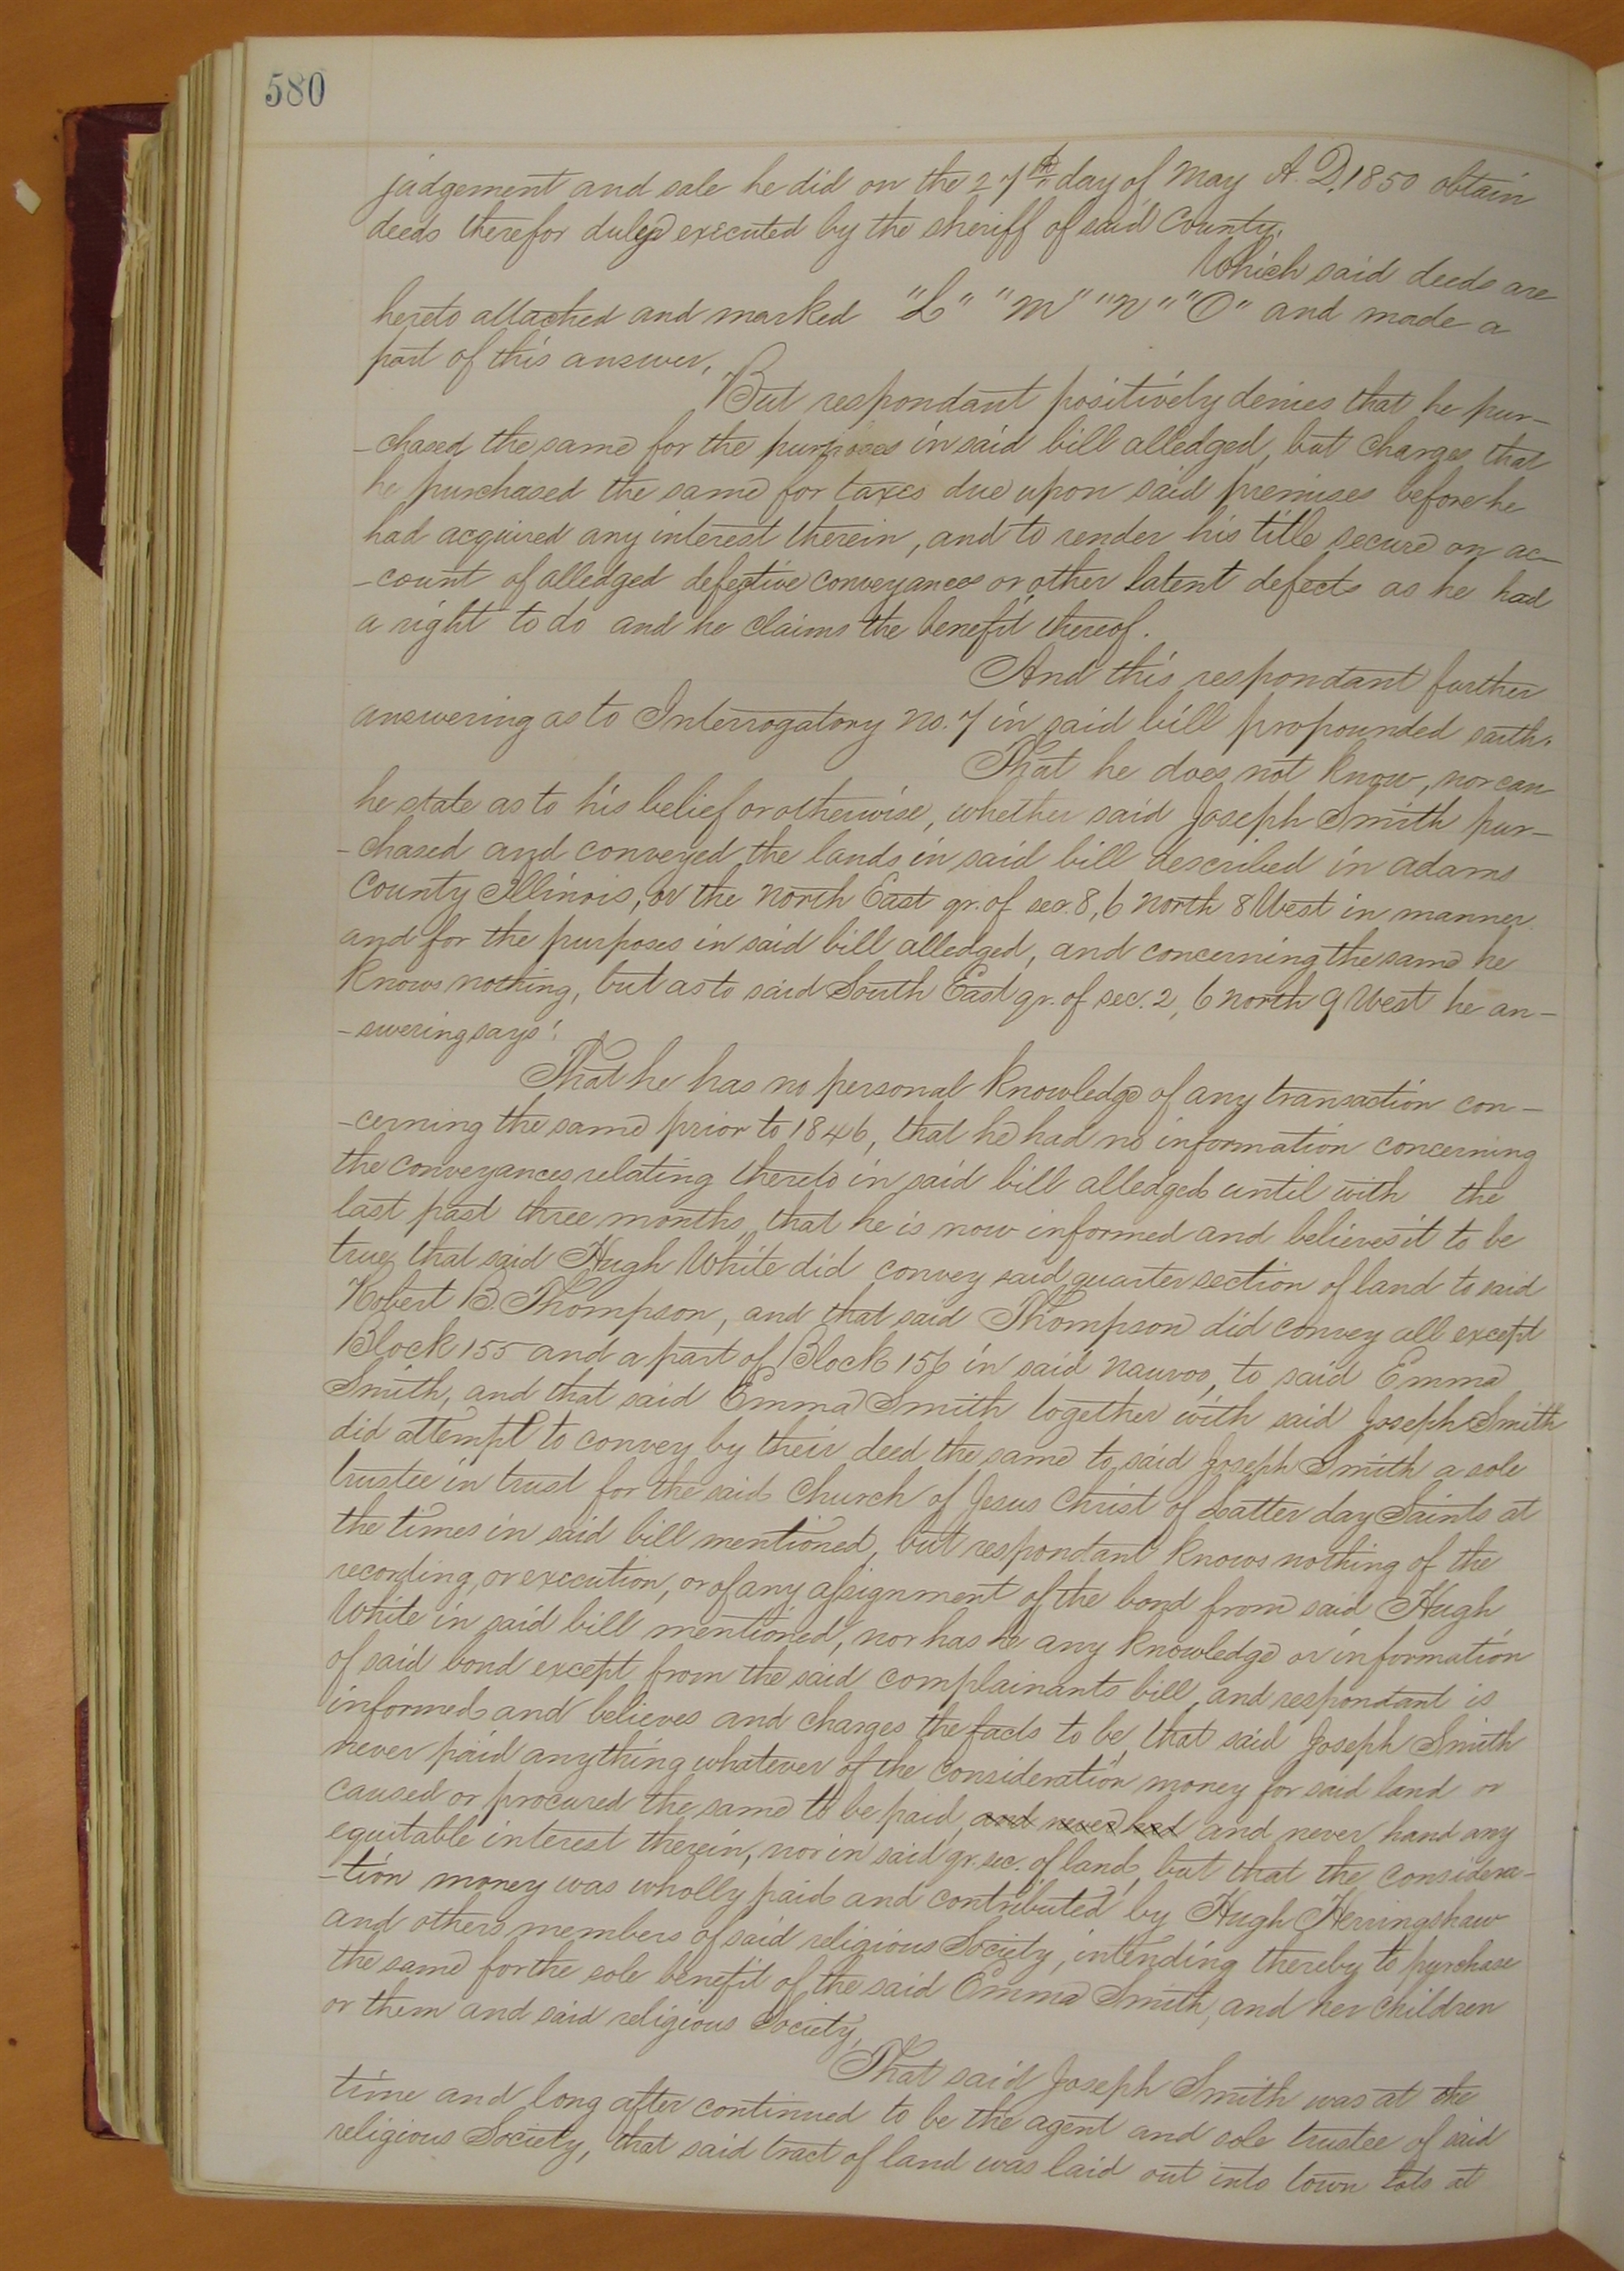 580
judgement and sale he did on the 27th day of May A. D. 1850 obtain
deeds therefor duly executed by the sheriff of said County.
Which said deeds are
hereto attached and marked "L" "M" "N" "O" and made a
part of this answer,
But respondant positively denies that he pur-
-chased the same for the purposes in said bill alledged, but charges that
he purchased the same for taxes due upon said premises before he
had acquired any interest therein, and to render his title secure on ac-
-count of alledged defective conveyances or other latent defects as he had
a right to do and he claims the benefit thereof.
And this respondant further
answering as to Interrogatory No. 7 in said bill propounded saith.
That he does not know, nor can
he state as to his belief or otherwise, whether said Joseph Smith pur-
-chased and conveyed the lands in said bill described in adams
County Illinois, or the North East qr. of sec. 8, 6 North 8 West in manner
and for the purposes in said bill alledged, and concerning the same he
knows nothing, but as to said South East qr. of sec. 2, 6 north 9 West he an-
-swering says:
That he has no personal knowledge of any transaction con-
-cerning the same prior to 1846, that he had no information concerning
the conveyances relating thereto in said bill alledged until with the
last past three months, that he is now informed and believes it to be
true, that said Hugh White did convey said quarter section of land to said
Robert B. Thompson, and that said Thompson did convey all except
Block 155 and a part of Block 156 in said Nauvoo, to said Emma
Smith, and that said Emma Smith together with said Joseph Smith
did attempt to convey by their deed the same to said Joseph Smith a sole
trustee in trust for the said Church of Jesus Christ of Latter day Saints at
the times in said bill mentioned, but respondant knows nothing of the
recording, or execution, or of any assignment of the bond from said Hugh
White in said bill mentioned, nor has he any knowledge or information
of said bond except from the said complainants bill, and respondant is
informed and believes and charges the facts to be, that said Joseph Smith
never paid anything whatever of the consideration money for said land or
caused or procured the same to be paid, and never had and never hand any
equitable interest therein, nor in said qr. sec. of land, but that the considera-
-tion money was wholly paid and contributed by Hugh Herringshaw
and others members of said religious Society, intending thereby to purchase
the same for the sole benefit of the said Emma Smith, and her children
or them and said religious Society,
That said Joseph Smith was at the
time and long after continued to be the agent and sole trustee of said
religious Society, that said tract of land was laid out into town lots at